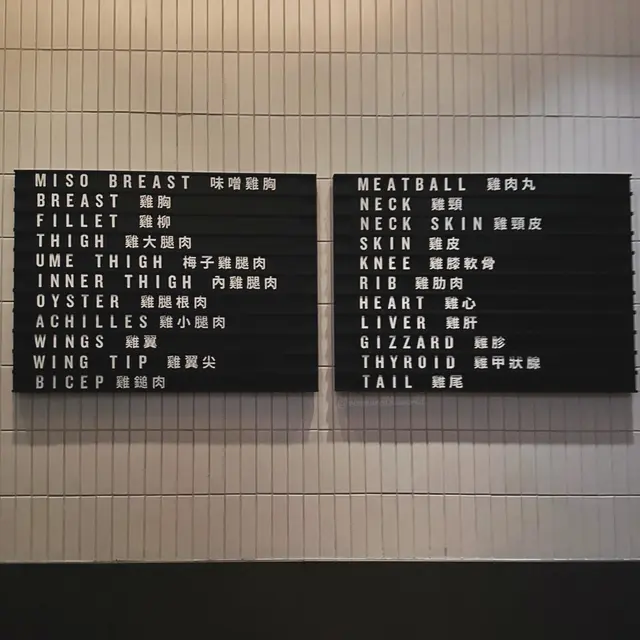 MISO BREAST 味噌雞胸
BREAST 雞胸
FILLET 雞柳
THIGH 雞大腿肉
UME THIGH 梅子雞腿肉
INNER THIGH 內雞腿肉
OYSTER 雞腿根肉
ACHILLES 雞小腿肉
WINGS 雞翼
WING TIP 雞翼尖
BICEP 雞鎚肉
MEATBALL 雞肉丸
NECK 雞頸
NECK SKIN 雞頸皮
SKIN 雞皮
KNEE 雞膝軟骨
RIB 雞肋肉
HEART 雞心
LIVER 雞肝
GIZZARD 雞胗
THYROID 雞甲狀腺
TAIL 雞尾